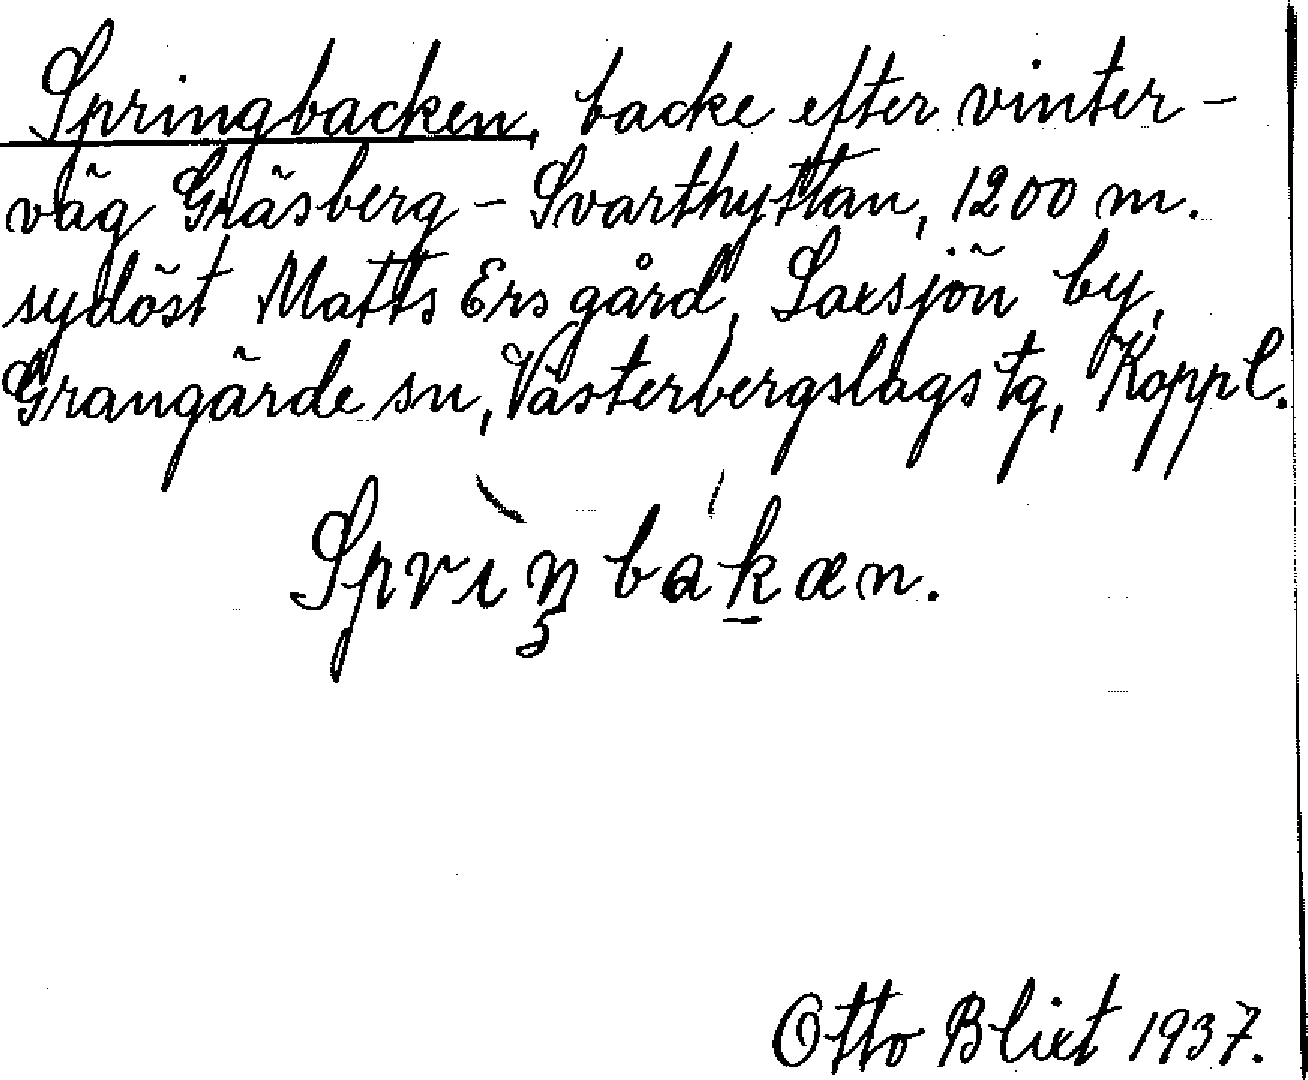 Springbacken, backe efter vinter-
väg Gräsberg - Svarthyttan, 1200 m.
sydöst Matts Ers gård, Laxsjön by,
Grangärde sn, Västerbergslags tg, Koppl.
Spriŋbakæn.
Otto Blixt 1937.